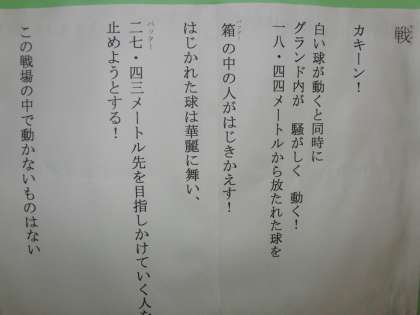 戦
カキーン！
白い球が動くと同時に
グランド内が　騒がしく　動く！
一八・四四メートルから放たれた球を
箱の中の人がはじきかえす！
はじかれた球は華麗に舞い、
バッター
二七・四三メートル先を目指しかけていく人を
止めようとする！
この戦場の中で動かないものはない